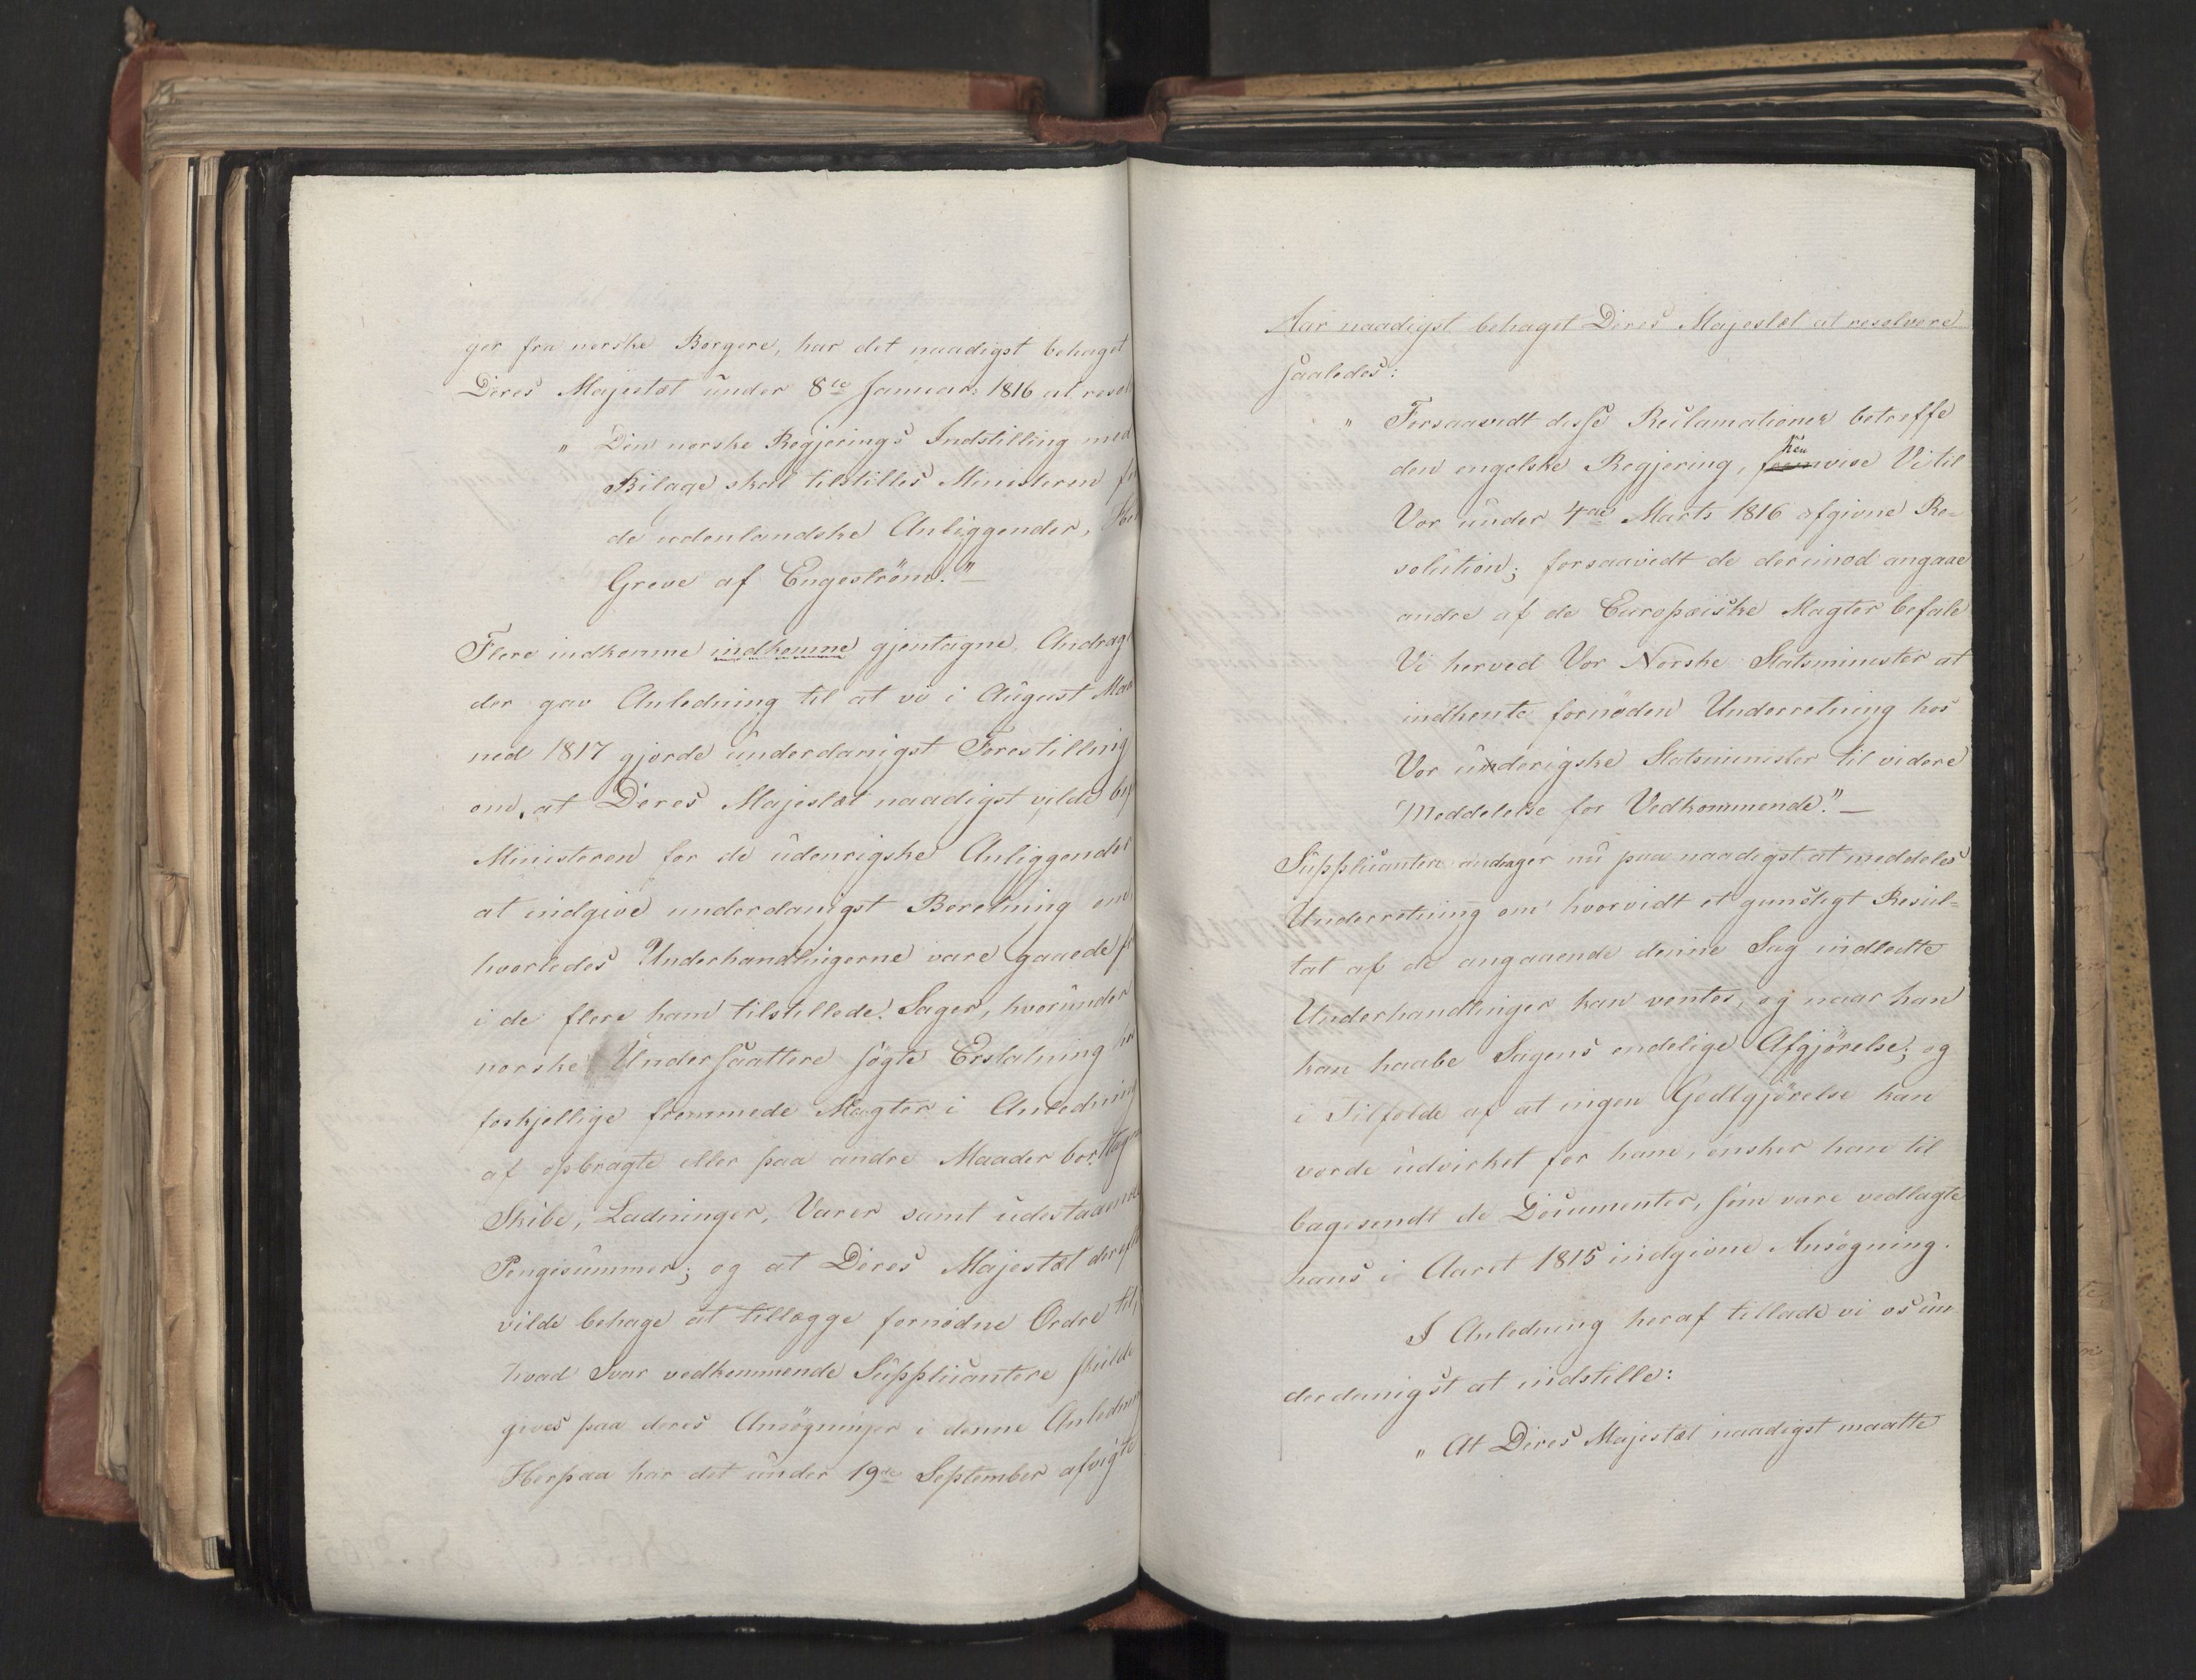 ger fra norske Borgere, har det naadigst behaget
Deres Majestæt under 8de Januar: 1816 at resol
" Den norske Regjerings Indstilling med
Bilage skal tilstilles Ministeren for
de udenlandske Anliggender, Her
Greve af Engeström." –
Flere indkomne indkomne gjentagne Andrag
der gav Anledning til at vi i August Maa
ned 1817 gjorde underdanigst Forestilling
om, at Deres Majestæt naadigst vilde bef
Ministeren for de udenrigske Anliggender
at indgive underdanigst Beretning om
hvorledes Underhandlingerne vare gaaede fr
i de flere ham tilstillede Sager, hvorunder
norske Undersaattere søgte Erstatning hos
forskjellige fremmede Magter i Anledning
af opbragte eller paa andre Maader borttagn
Skibe, Ladninger, Varer samt udestaaende
Pengesummer; og at Deres Majestæt dereft
vilde behage at tillægge fornødne Ordre til,
hvad Svar vedkommende Supplicantere skulde
gives paa deres Ansøgninger i denne Anledning
Herpaa har det under 19de September afvigte
Aar naadigst behaget Deres Majestæt at resolvere
saaledes:
" Forsaavidt disse Reclamationer betreffe
den engelske Regjering, henvise Vi til
Vor under 4de Marts 1816 afgivne Re=
solution; forsaavidt de derimod angaae
andre af de Europæiske Magter befale
Vi herved Vor Norske Statsminister at
indhente fornøden Underretning hos
Vor udenrigske Statsminister til videre
Meddelelse for Vedkommende." –
Supplicanten andrager nu paa naadigst at meddeles
Underretning om hvorvidt et gunstigt Resul=
tat af de angaaende denne Sag indledte
Underhandlinger kan ventes, og naar han
kan haabe Sagens endelige Afgjørelse; og
i Tilfælde af at ingen Godtgjørelse kan
vorde udvirket for ham, ønsker han til
bagesendt de Documenter, som vare vedlagte
hans i Aaret 1815 indgivne Ansøgning.
I Anledning heraf tillade vi os un
derdanigst at indstille:
" At Deres Majestæt naadigst maatte